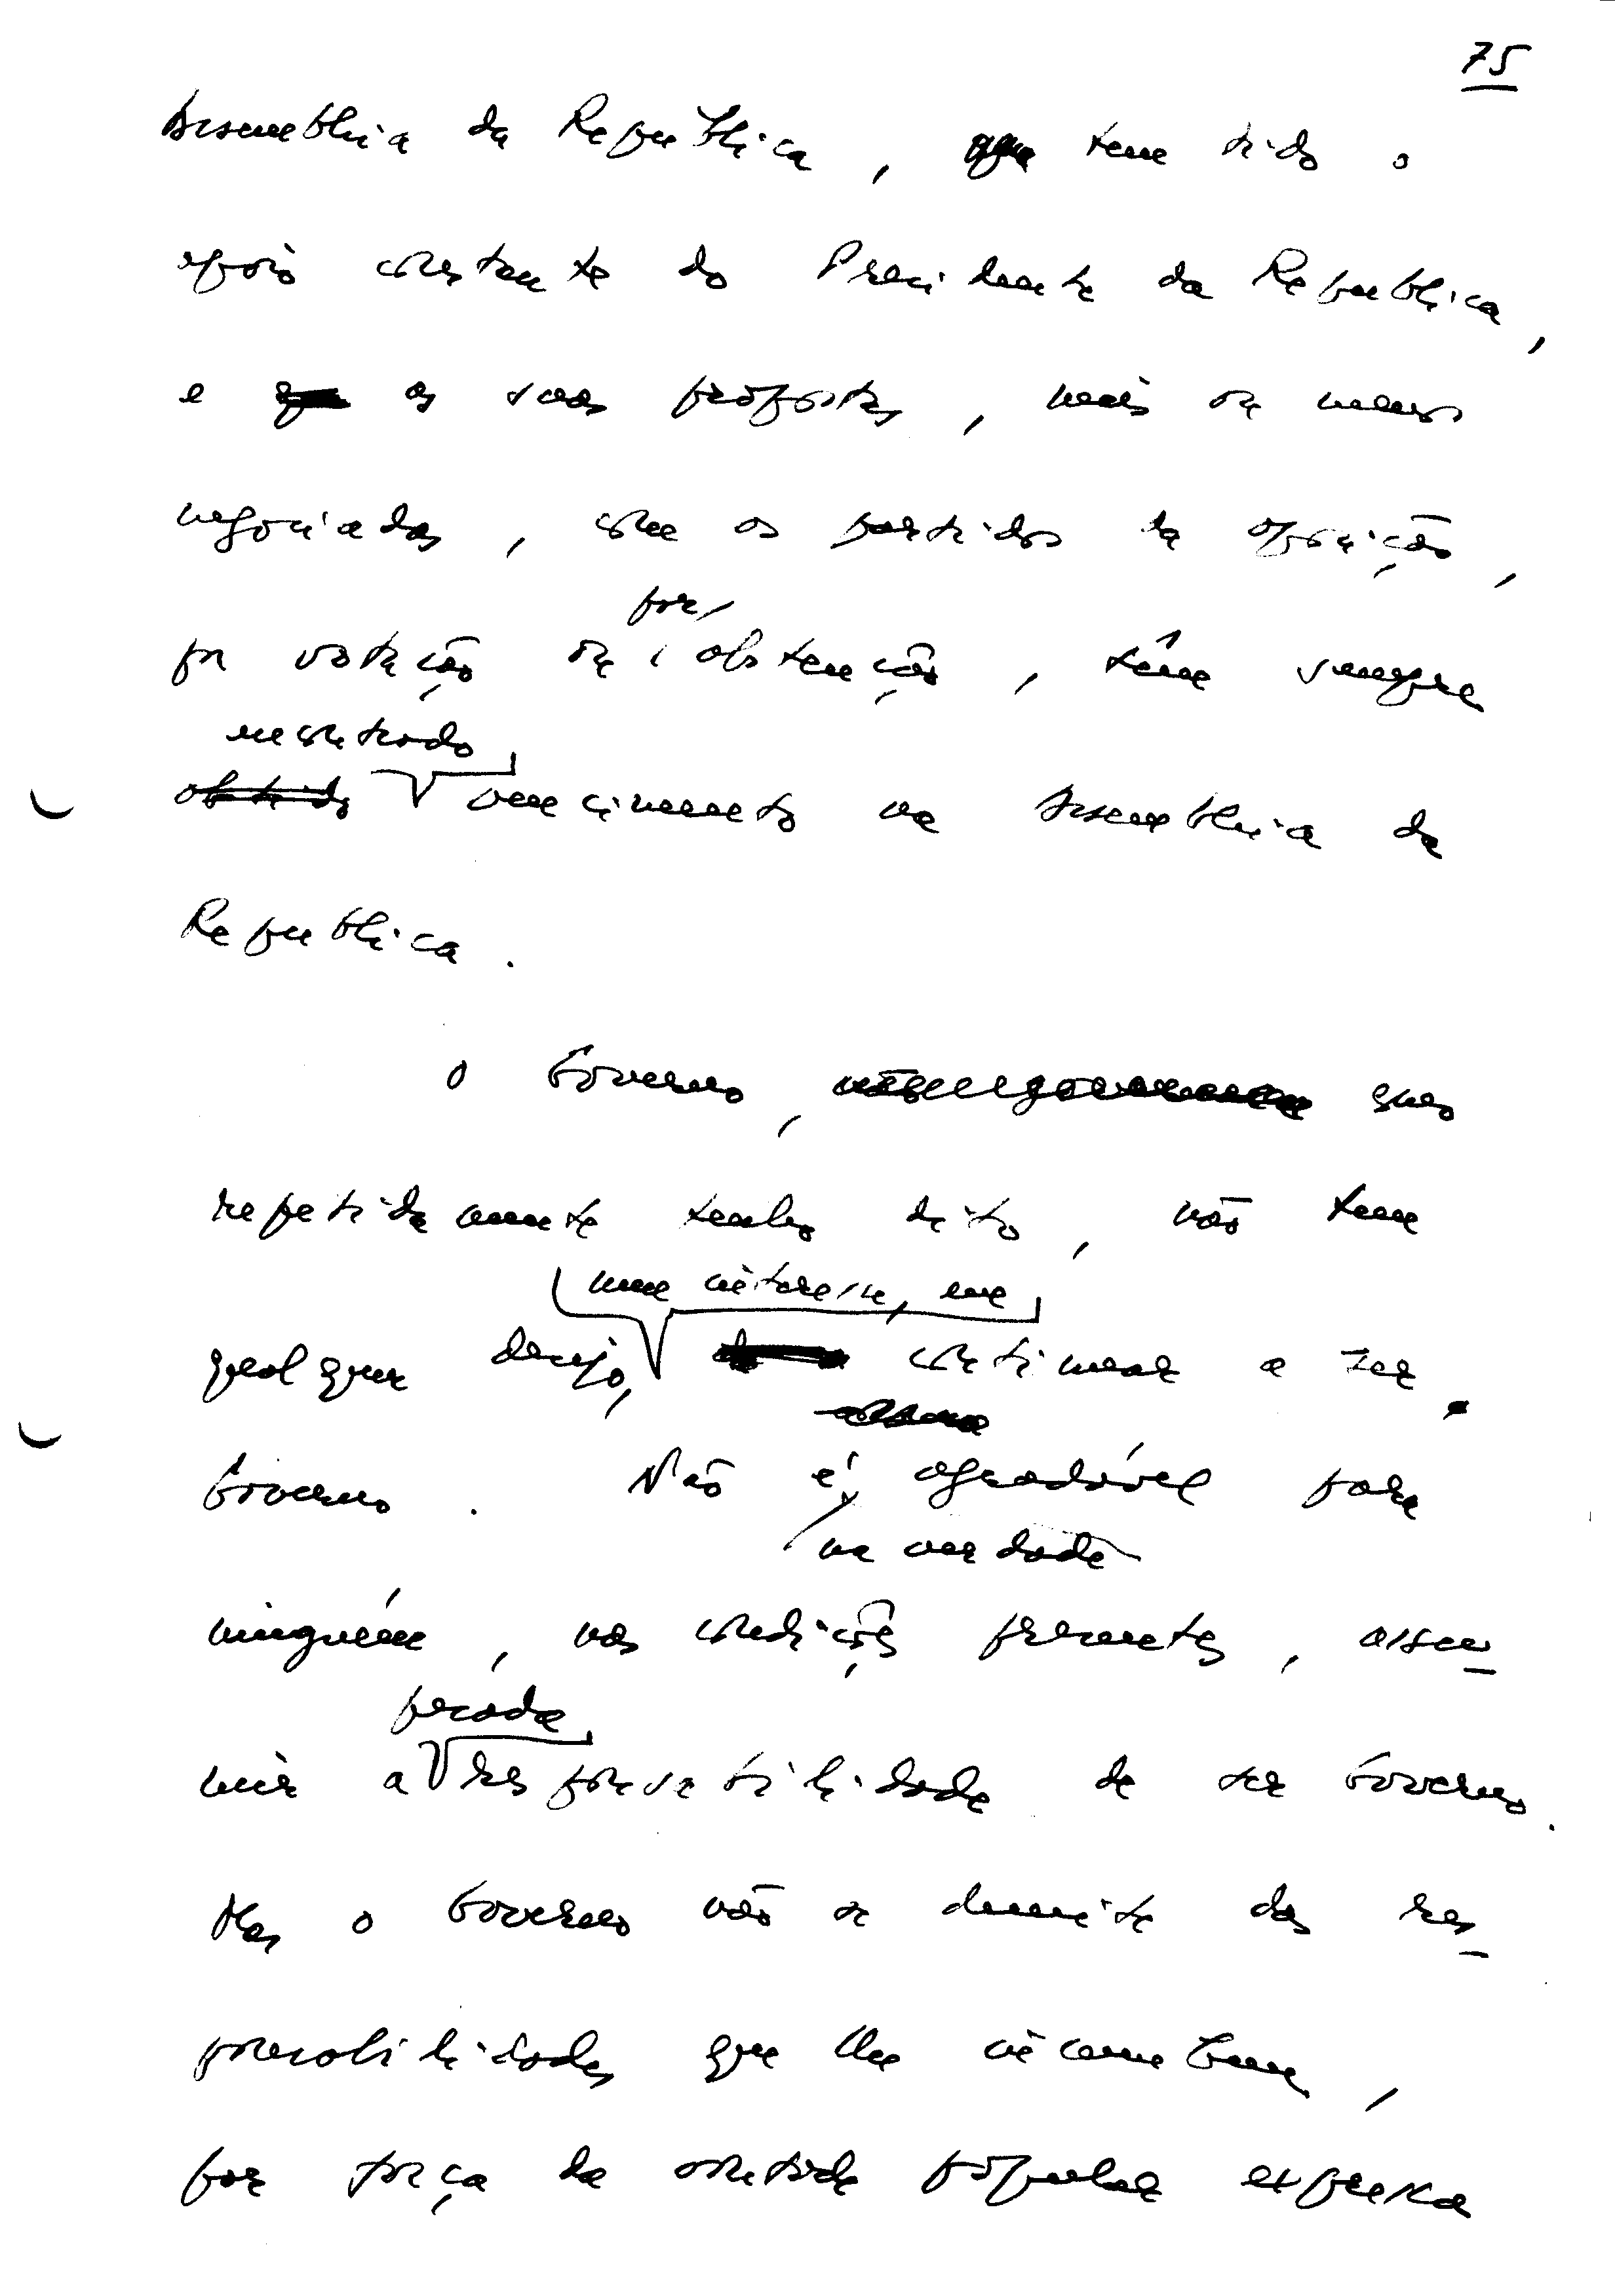 75
Assembleia da República, tem tido o
apoio constante do Presidente da República,
e as suas propostas, mais ou menos
negociadas, com os partidos da oposição,
por
por votação ou abstenção, têm sempre
encontrado
obtido vencimento na Assembleia da
República.
O Governo, como
repetidamente tenho dito, não tem
nem interesse, em
qualquer desejo, continuar a ser
Governo. Não é agradável para
na verdade
ninguém, nas condições presentes, assu-
pesada
mir a responsabilidade de ser Governo.
Mas o Governo não se demite das res-
ponsabilidades que lhe incumbem,
por força da vontade popular expressa